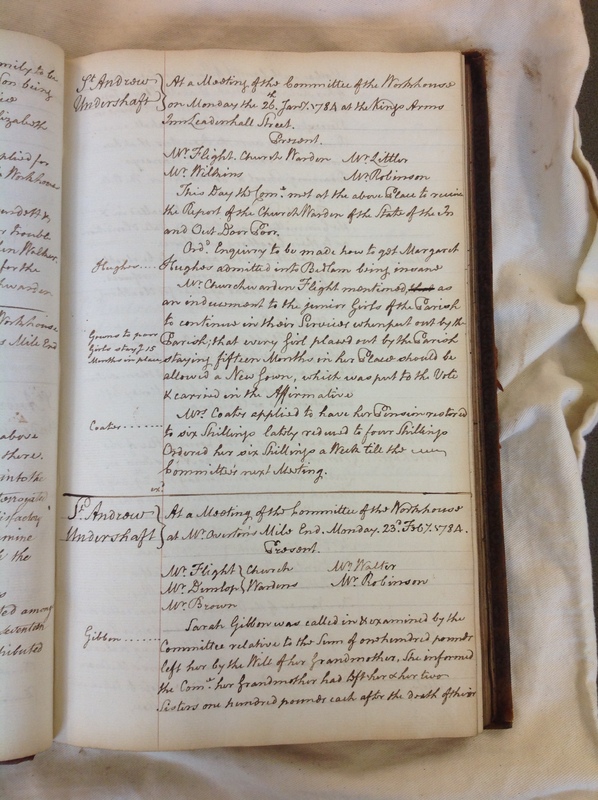 mily to be
Son being
lizabeth
pplied for
Workhouse
Trouble
in Walker
for the
hwarden
Workhouse
s Mile End
above
there.
into the
mine
k the
ted among
Seventeen
tributed
St. Andrew
Undershaft
At a Meeting of the Committee of the Workhouse
on Monday the 26th. Jany. 1784 at the Kings Arms
Inn Leadenhall Street.
Present.
Mr. Flight. Church Warden Mr. Littler
Mr. Wilkins Mr. Robinson
This Day the Come. met at the above Place to receive
the Report of the Church Warden of the State of the In
and Out Door Poor.
Ord. Enquiry to be made how to get Margaret
Hughes.... Hughes admitted into Bedlam being insane
Mr. Churchwarden Flight mentioned, that as
an inducement to the junior Girls of the Parish
to continue in their Services when put out by the
Gowns to poor
Girls stayg. 15
Months in place
Parish, that every Girl placed out by the Parish
staying fifteen Months in her Place should be
allowed a New Gown, which was put to the Vote
& carried in the Affirmative
Coates.......
Mrs. Coates applied to have her Pension restored
to six Shillings lately reduced to four Shillings
Ordered her six Shillings a Week till the
Committee's next Meeting.
exd.
St. Andrew
Undershaft
At a Meeting of the Committee of the Workhouse
at Mr. Overton's Mile End. Monday. 23d. Feby. 1784.
Present.
Mr. Flight Church Mr. Walter
Mr. Dunlop Wardens Mr. Robinson
Mr. Brown
Sarah Gibbon was called in & examined by the
Gibbon.......
Committee relative to the Sum of one hundred pounds
left her by the Will of her Grandmother, She informed
the Come. her Grandmother had left her & her two
Sisters one hundred pounds each after the death of their